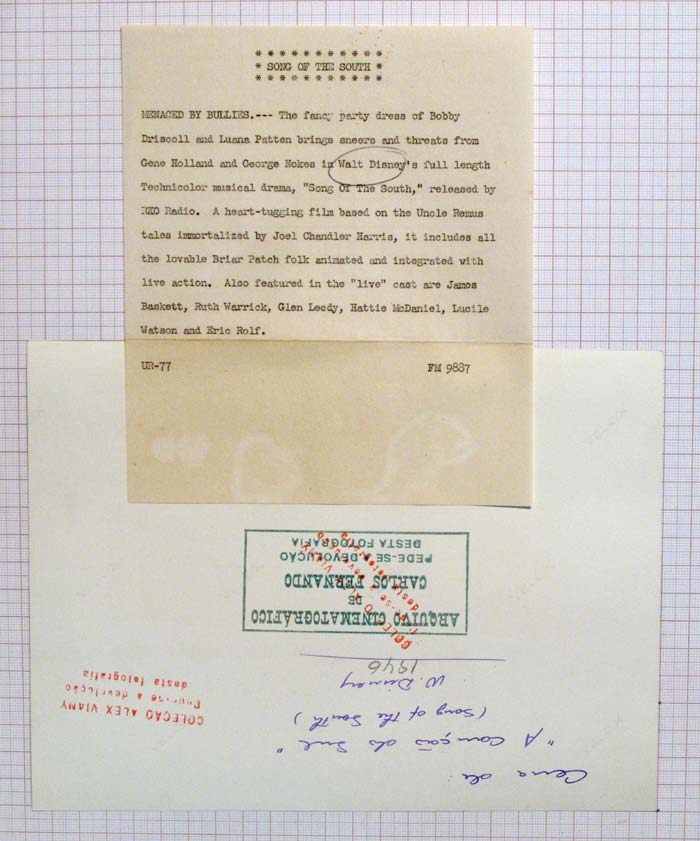 * * * * * * * * * * *
* SONG OF THE SOUTH *
* * * * * * * * * * *
MENACED BY BULLIES.--- The fancy party dress of Bobby
Driscoll and Luana Patten brings sneers and threats from
Gene Holland and George Nokes in Walt Disney's full length
Technicolor musical drama, "Song Of The South," released by
RKO Radio. A heart-tugging film based on the Uncle Remus
tales immortalized by Joel Chandler Harris, it includes all
the lovable Briar Patch folk animated and integrated with
live action. Also featured in the "live" cast are James
Baskett, Ruth Warrick, Glen Leedy, Hattie McDaniel, Lucile
Watson and Eric Rolf.
UR-77 FM 9887
Cena de:
"A Canção do Sul"
(Song of the South)
W. Disney
1946
COLEÇÃO ALEX VIANY
Pede-se a devolução
desta fotografia
ARQUIVO CINEMATOGRÁFICO
DE
CARLOS FERNANDO
PEDE-SE A DEVOLUÇÃO
DESTA FOTOGRAFIA